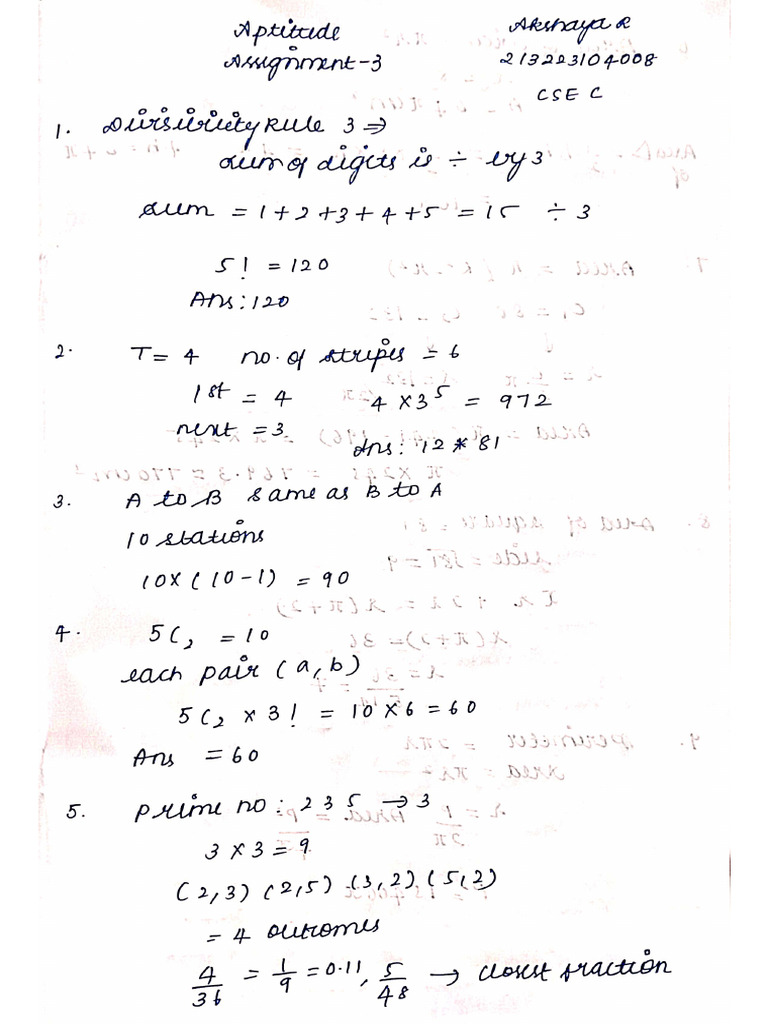 Aptitude
Akshaya R
Assignment-3
213223104008
CSE C
1. Divisibility Rule 3 ⇒
sum of digits is ÷ by 3
sum = 1+2+3+4+5 = 15 ÷ 3
5! = 120
Ans: 120
2. T = 4 no. of stripes = 6
1st = 4 4 × 3⁵ = 972
next = 3
Ans: 12 * 81
3. A to B same as B to A
10 stations
10 × (10-1) = 90
4. 5C₂ = 10
each pair (a, b)
5C₂ × 3! = 10 × 6 = 60
Ans = 60
5. prime no: 2 3 5 → 3
3 × 3 = 9
(2,3) (2,5) (3,2) (5,2)
= 4 outcomes
4/36 = 1/9 = 0.11, 5/48 → closest fraction